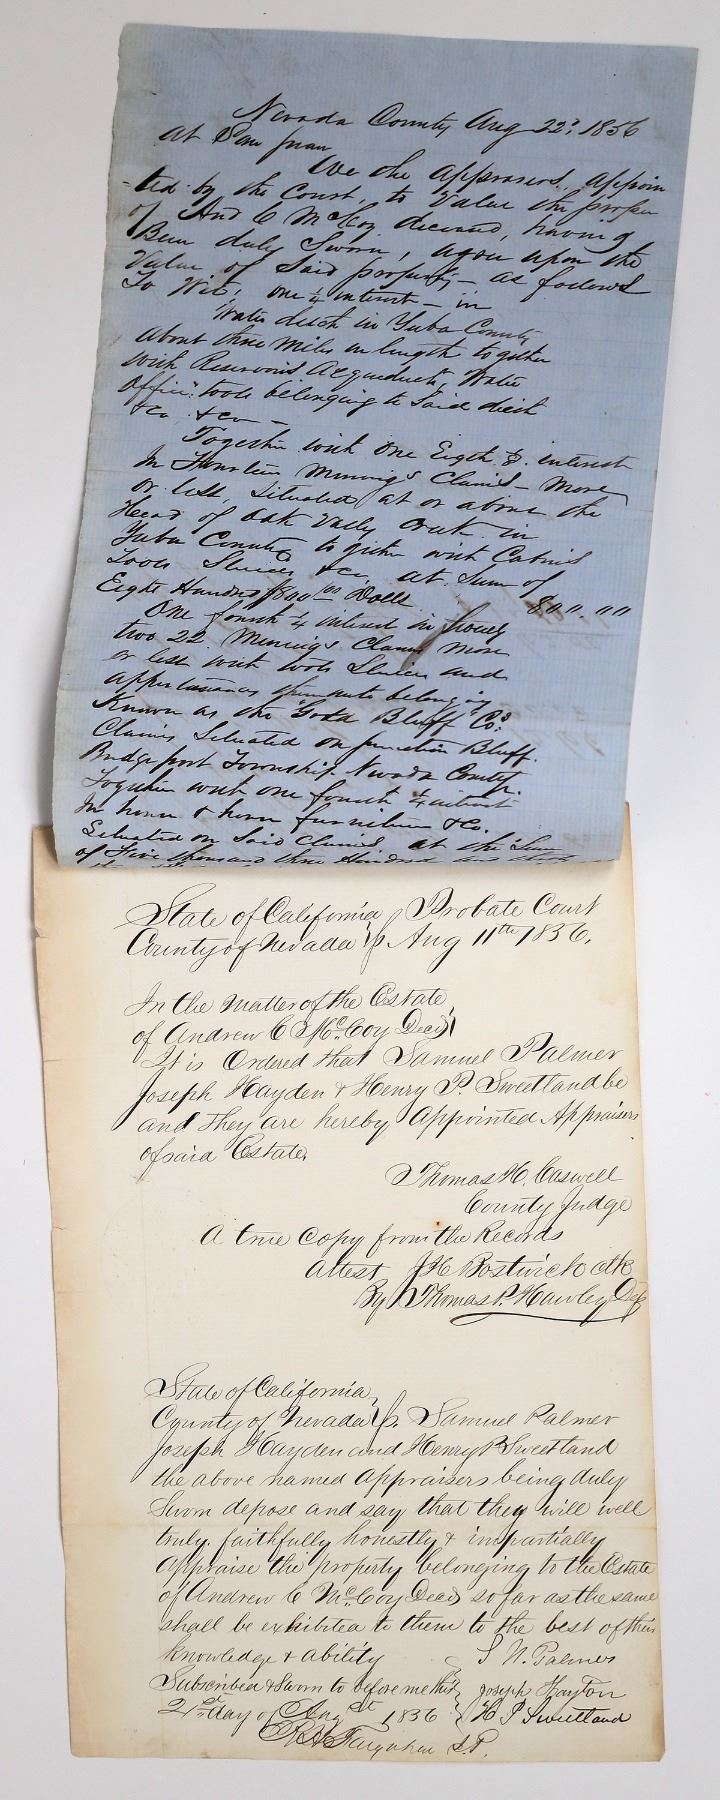 Nevada County Aug 22d 1856
At San Juan
We the apprasers, appoin
-ted by the Court, to value the proper
of And C McCoy deceased, having
Been duly Sworn, agree upon the
Value of Said property - as follows
To Wit; one ¼ interest - in
Water ditch in Yuba County
about three miles in length together
with Reservoirs Acqueduct, Water
Office: tools belonging to Said ditch
&c &c -
Together with One Eigth 8 interest
In Fourteen Minings Claims - More
or less, Situated at or above the
Head of Oak Vally Creek in
Yuba County together with Cabins
Tools Sluices &c, at Sum of
Eight Hundred $800 00 Dolls 80".""
One fourth ¼ interest in
two 22 Minings Claims More
or less with tools Sluices and
appertanances belonging
Known as the Gold Bluff Co's
Claims Situated on Junction Bluff.
Bridgeport Township, Nevada County.
Together with one fourth ¼ interest
In house & house furniture &c.
Situated on Said Claims, at the Sum
of Five thousand three Hundred
State of California } Probate Court
County of Nevada } ss Aug 11th 1856.
In the Matter of the Estate
of Andrew C McCoy Decd
It is Ordered that Samuel Palmer
Joseph Hayden & Henry P. Sweetland be
and they are hereby Appointed Appraisers
of said Estate.
Thomas H. Caswell
County Judge
A true Copy from the Records
Attest J H Bostwick clk
By Thomas P. Hawley Dep
State of California }
County of Nevada } ss. Samuel Palmer
Joseph Hayden and Henry P Sweetland
the above named appraisers being duly
Sworn depose and say that they will well
truly, faithfully honestly & impartially
appraise the property belonging to the Estate
of Andrew C McCoy Decd so far as the same
shall be exhibited to them to the best of their
knowledge & ability } S W. Palmer
Subscribed & Sworn to before me this } Joseph Hayton
21st day of Augst 1856 } H P Sweetland
Farquhar J.P.